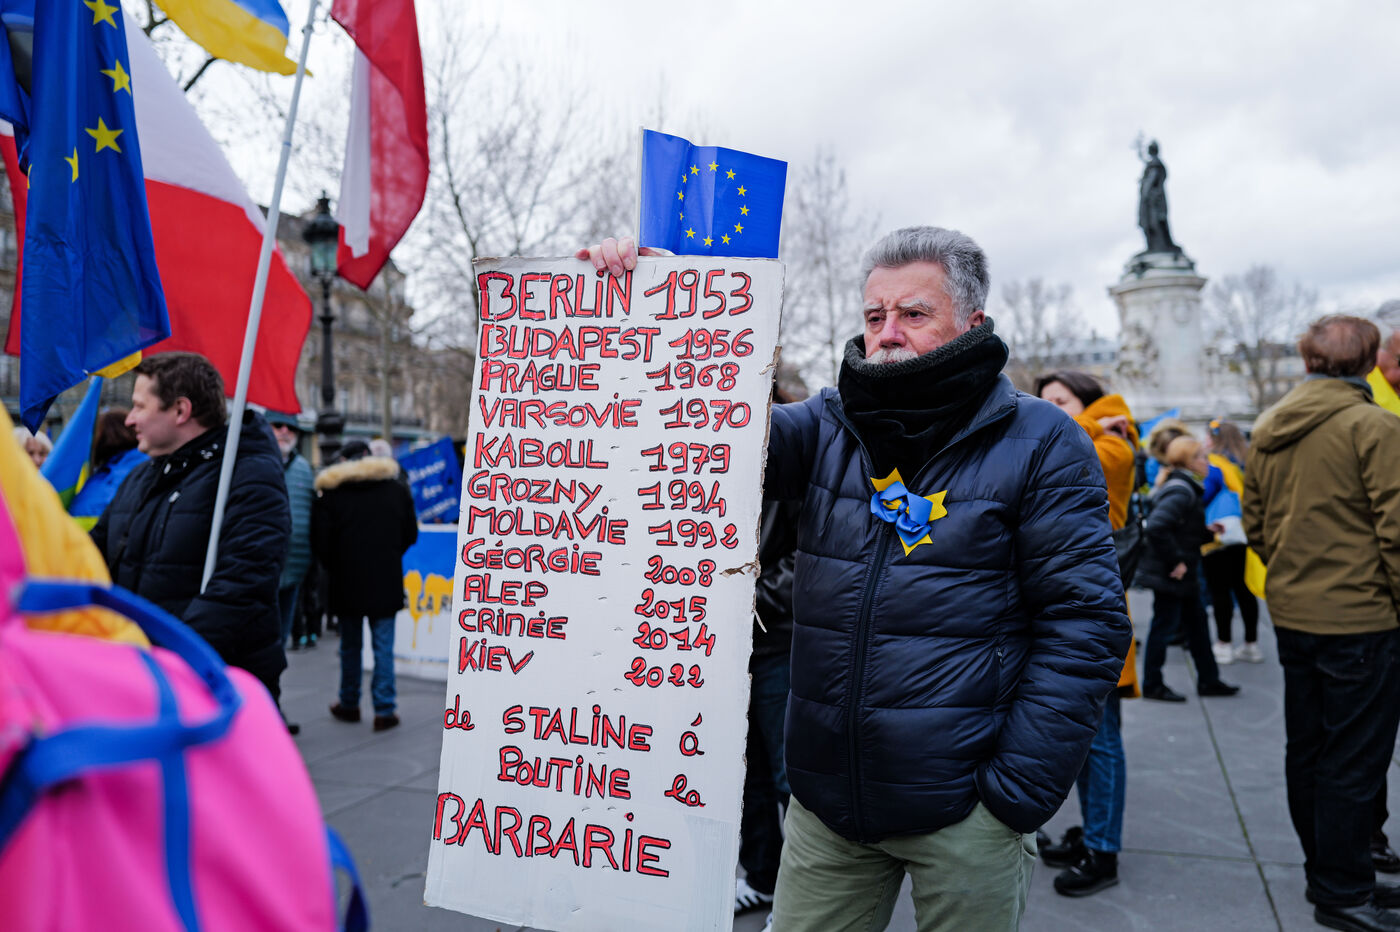 BERLIN 1953
BUDAPEST 1956
PRAGUE - 1968
VARSOVIE 1970
KABOUL - 1979
GROZNY - 1994
MOLDAVIE - 1992
GÉORGIE - 2008
ALEP 2015
CRIMÉE - 2014
KIEV 2022
de STALINE á
POUTINE la
BARBARIE